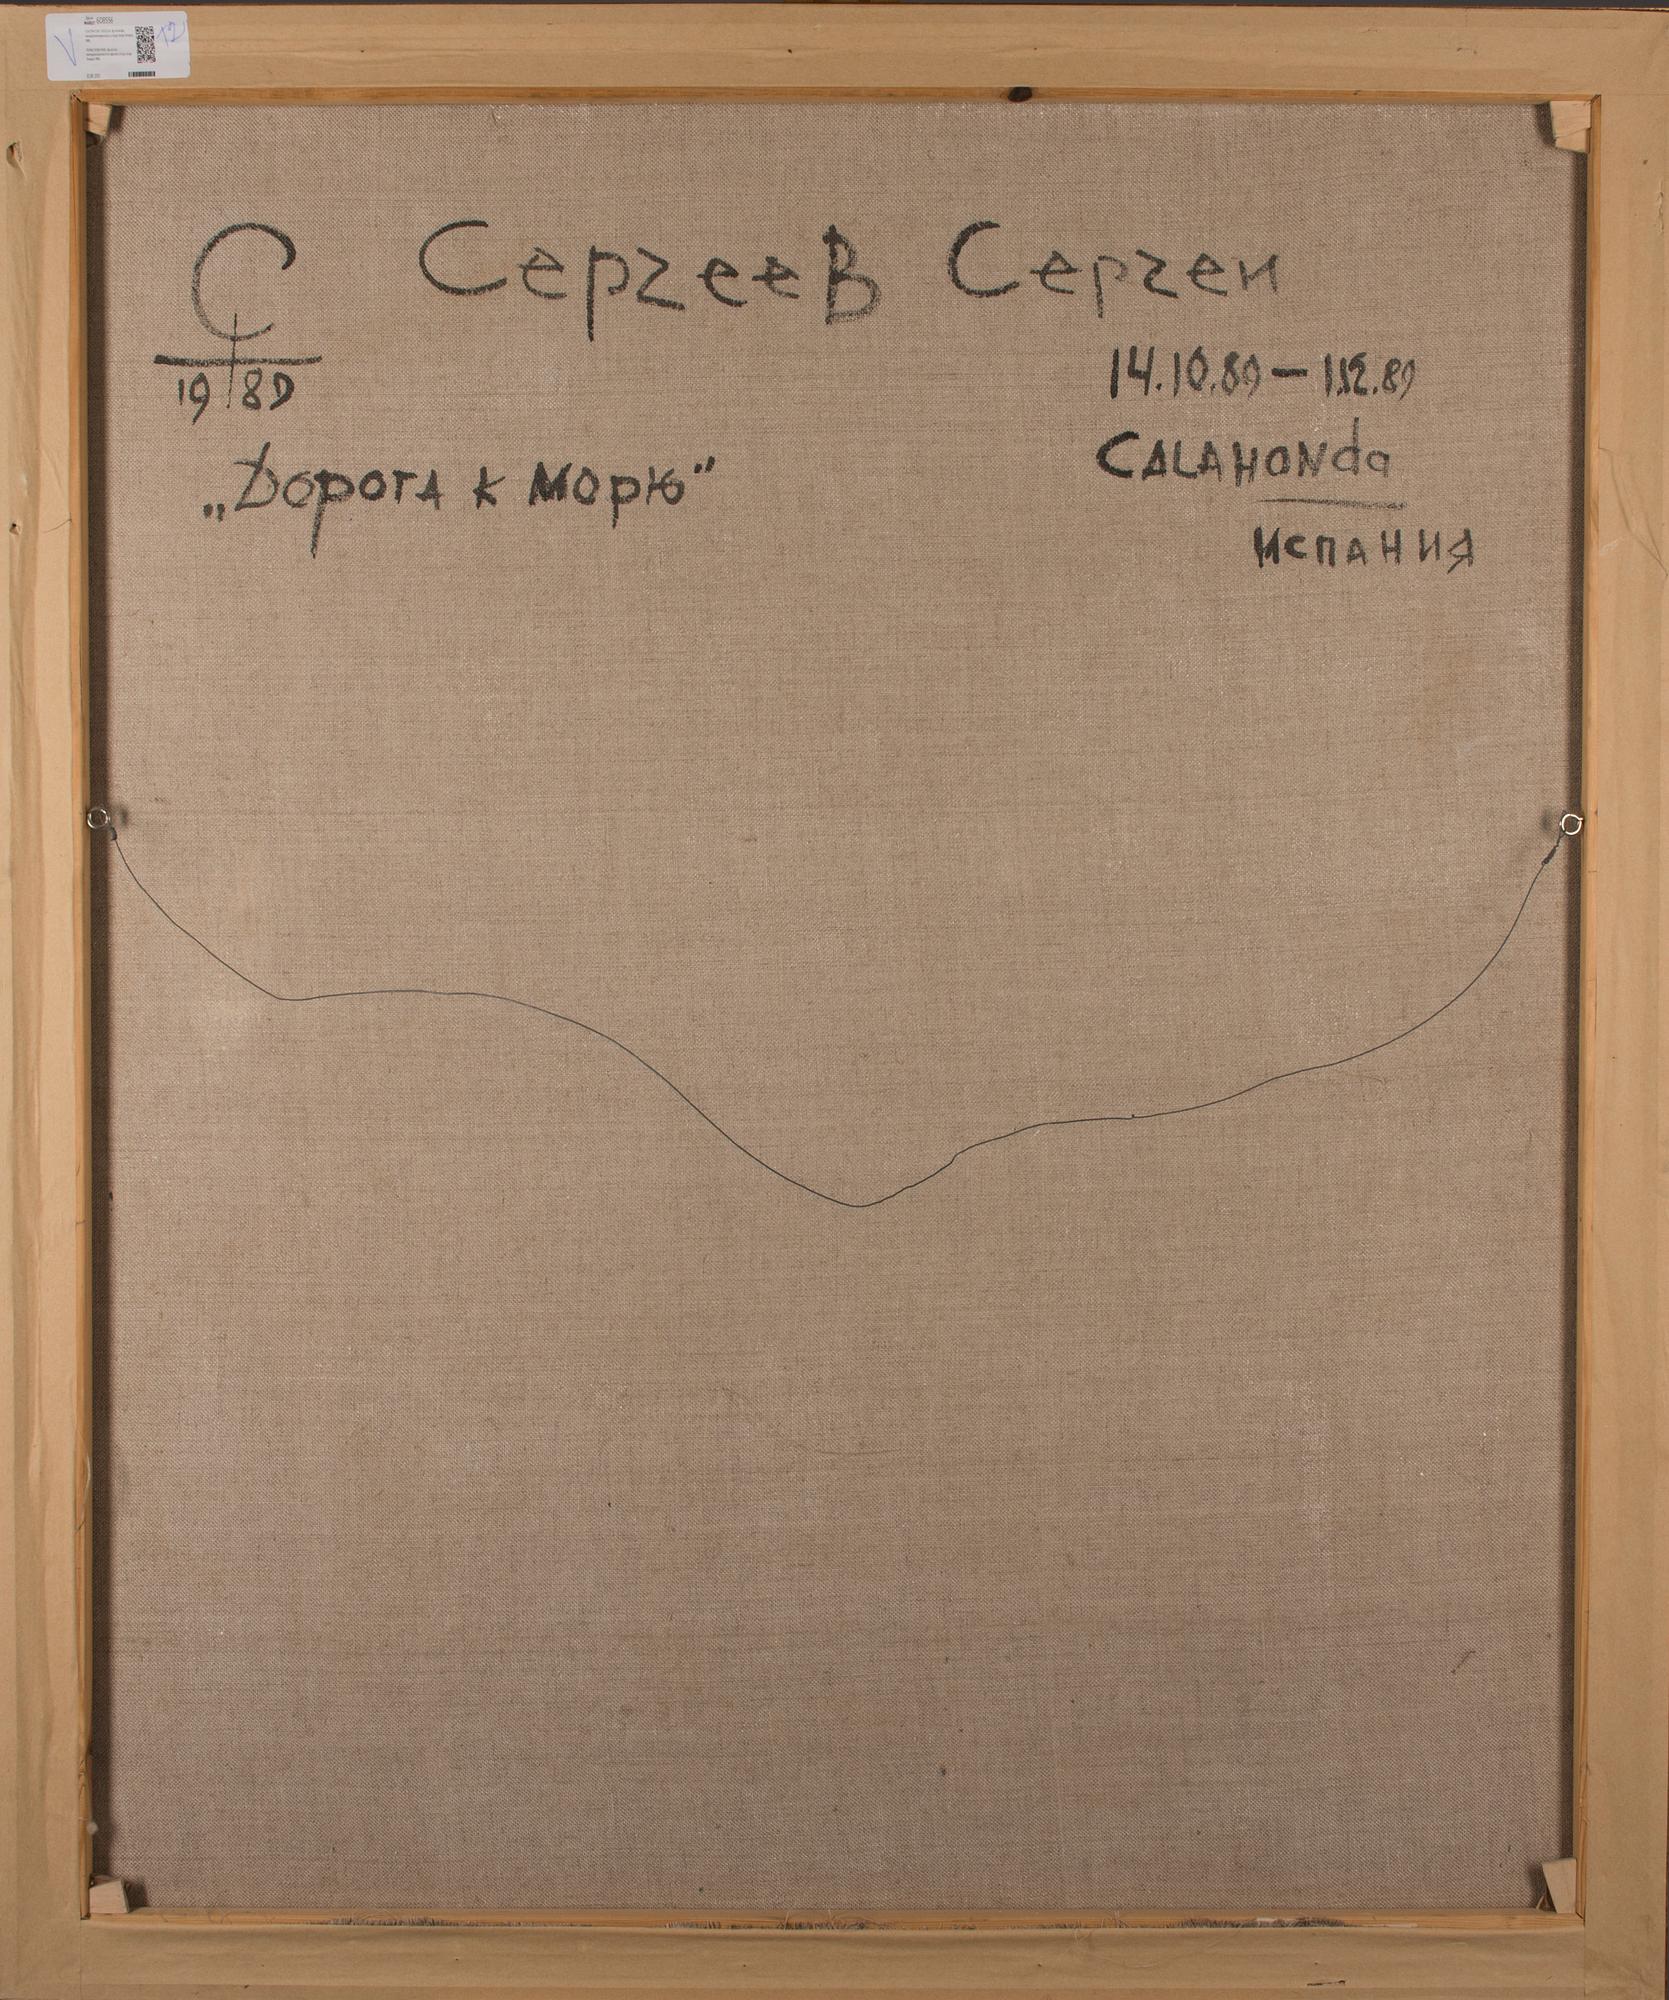 608556
С Сергеев Серген
19 89
14.10.89 – 1.12.89
„Дорога к морю"
CALAHONda
Испания